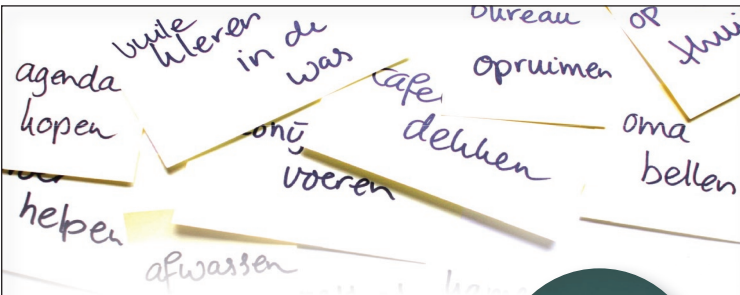 agenda
kopen
vuile
kleren
in de
was
bureau
opruimen
op
tafel
dekken
oma
bellen
voeren
helpen
afwassen